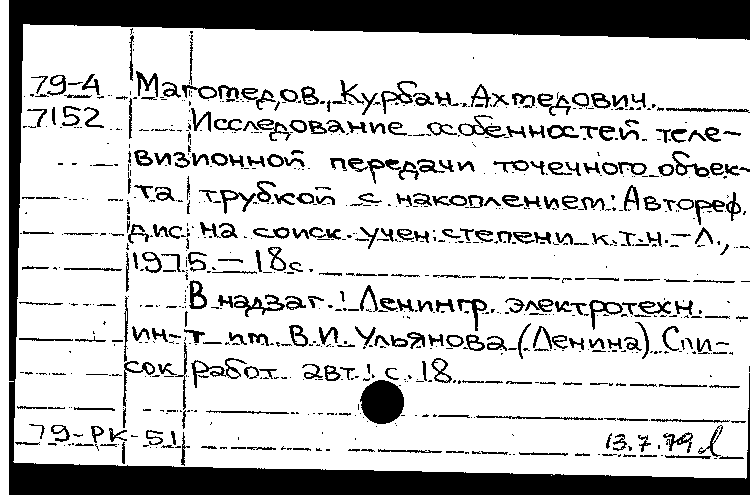 79-4 Магомедов, Курбан Ахмедович.
7152 Исследование особенностей теле-
визионной передачи точечного объек-
та трубкой с накоплением: Автореф.
дис. на соиск. учен. степени к.т.н. – Л.,
1975. – 18с.
В надзаг.: Ленингр. электротехн.
ин-т им. В.И. Ульянова (Ленина) Спи-
сок работ авт.: с. 18
79-РК-51 13.7.79